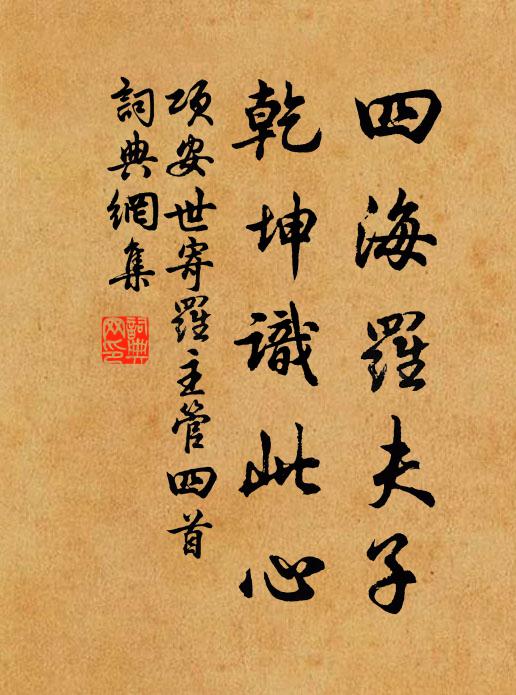 四海羅夫子
乾坤識此心
項安世寄羅主管四首
詞典網集
詞典網印